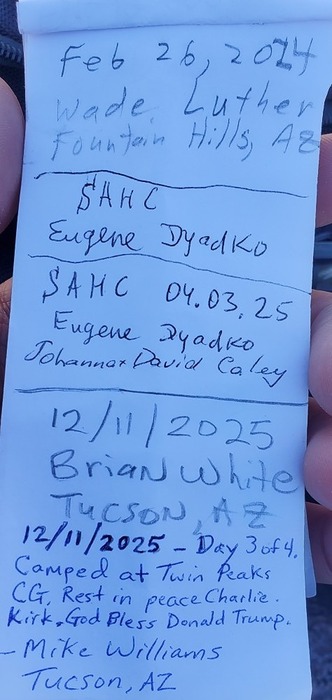 Feb 26, 2024
Wade Luther
Fountain Hills, AZ
SAHC
Eugene Dyadko
SAHC 04.03.25
Eugene Dyadko
Johanna + David Caley
12/11/2025
Brian White
Tucson, AZ
12/11/2025 - Day 3 of 4.
Camped at Twin Peaks
CG. Rest in peace Charlie
Kirk. God Bless Donald Trump.
- Mike Williams
Tucson, AZ